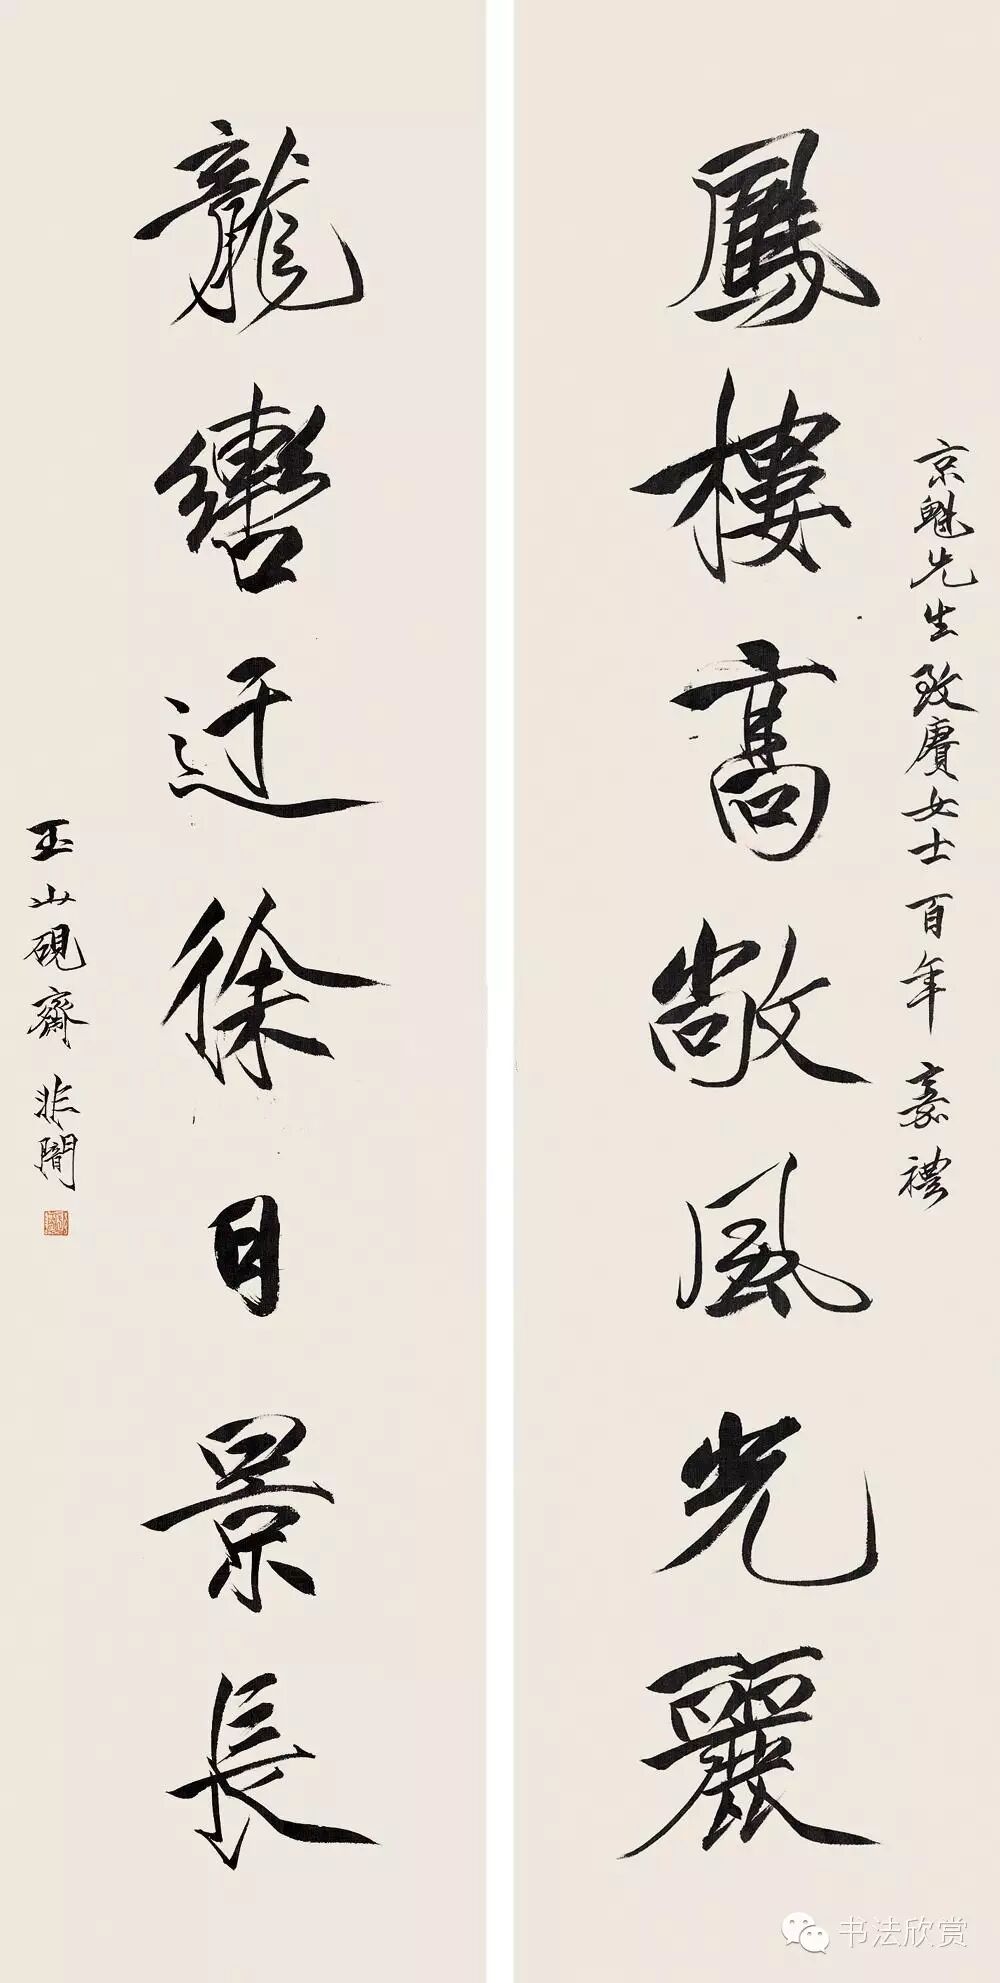 京魁先生致賡女士百年嘉禮
鳳樓高敞風光麗
龍轡迂徐日景長
玉山硯齋非闇
书法欣赏